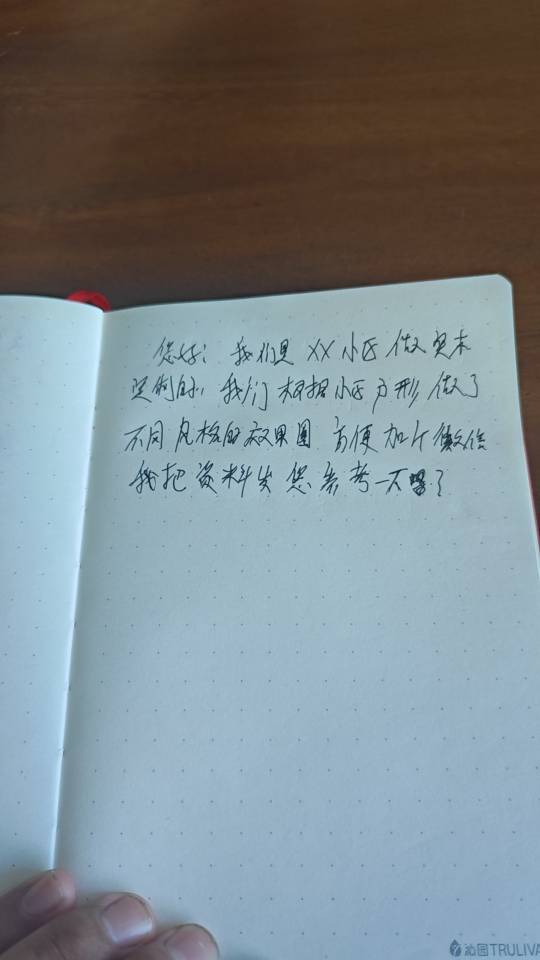 您好：我们是XX小区做实木
定制的，我们根据小区户形做了
不同风格的效果图 方便加个微信
我把资料发您参考一下
沁园TRULIVA